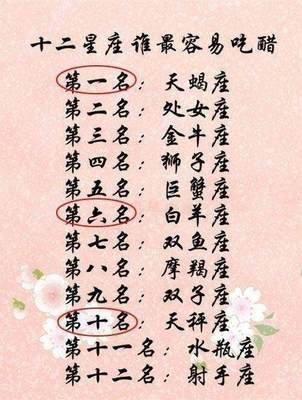 十二星座谁最容易吃醋
第一名：天蝎座
第二名：处女座
第三名：金牛座
第四名：狮子座
第五名：巨蟹座
第六名：白羊座
第七名：双鱼座
第八名：摩羯座
第九名：双子座
第十名：天秤座
第十一名：水瓶座
第十二名：射手座